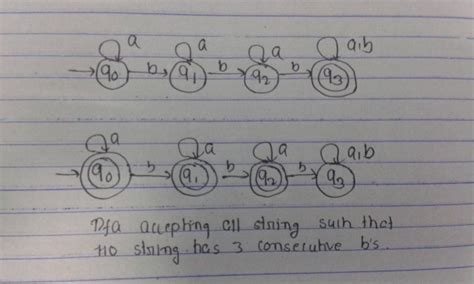 a a a a,b
q0 b q1 b q2 b q3
a a a a,b
q0 b q1 b q2 b q3
Dfa accepting all string such that
no string has 3 consecutive b's.